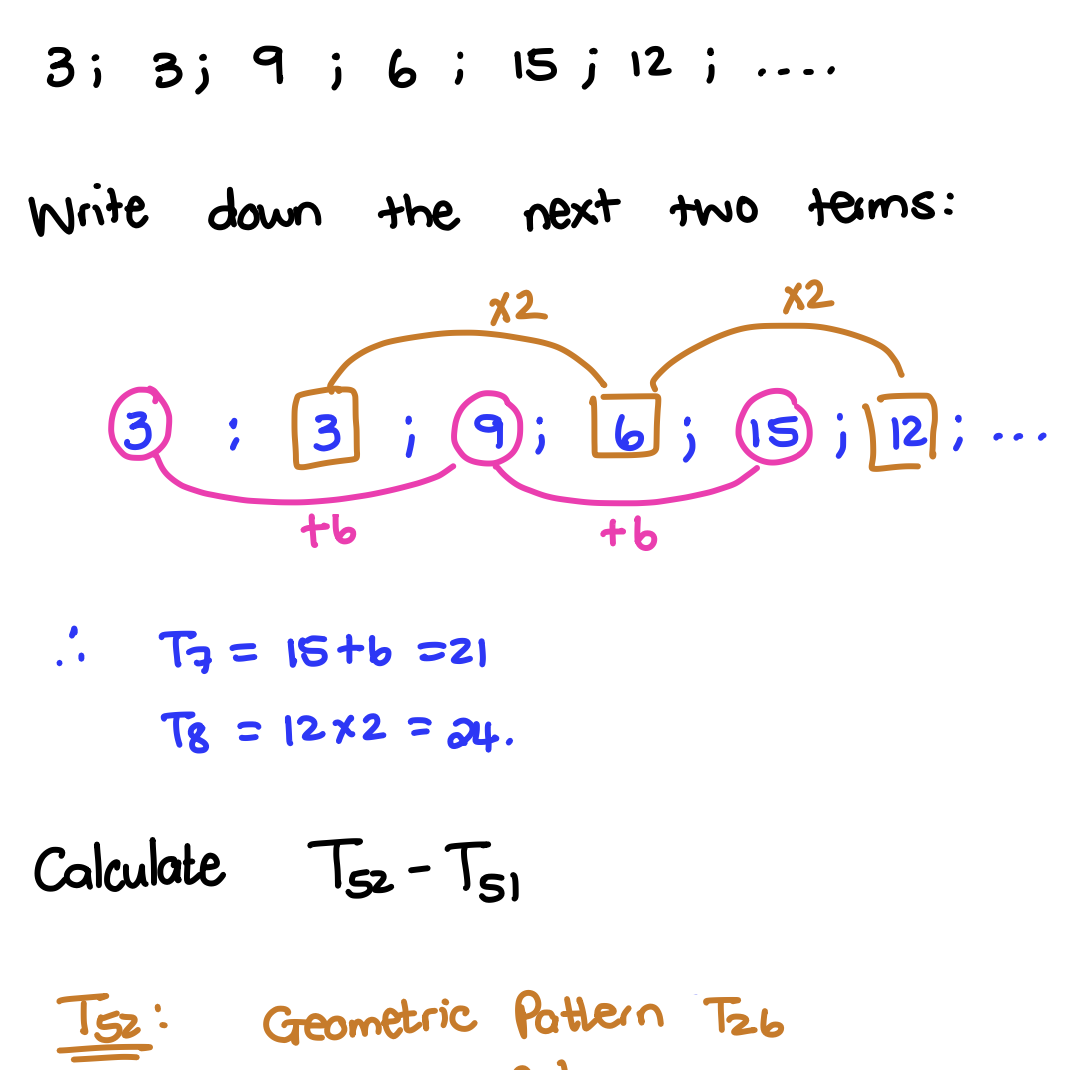 3; 3; 9 ; 6 ; 15 ; 12 ; ....
Write down the next two terms:
x2 x2
3 ; 3 ; 9 ; 6 ; 15 ; 12 ; ...
+6 +6
∴ T₇ = 15+6 =21
T₈ = 12×2 = 24.
Calculate T₅₂ - T₅₁
T₅₂: Geometric Pattern T₂₆